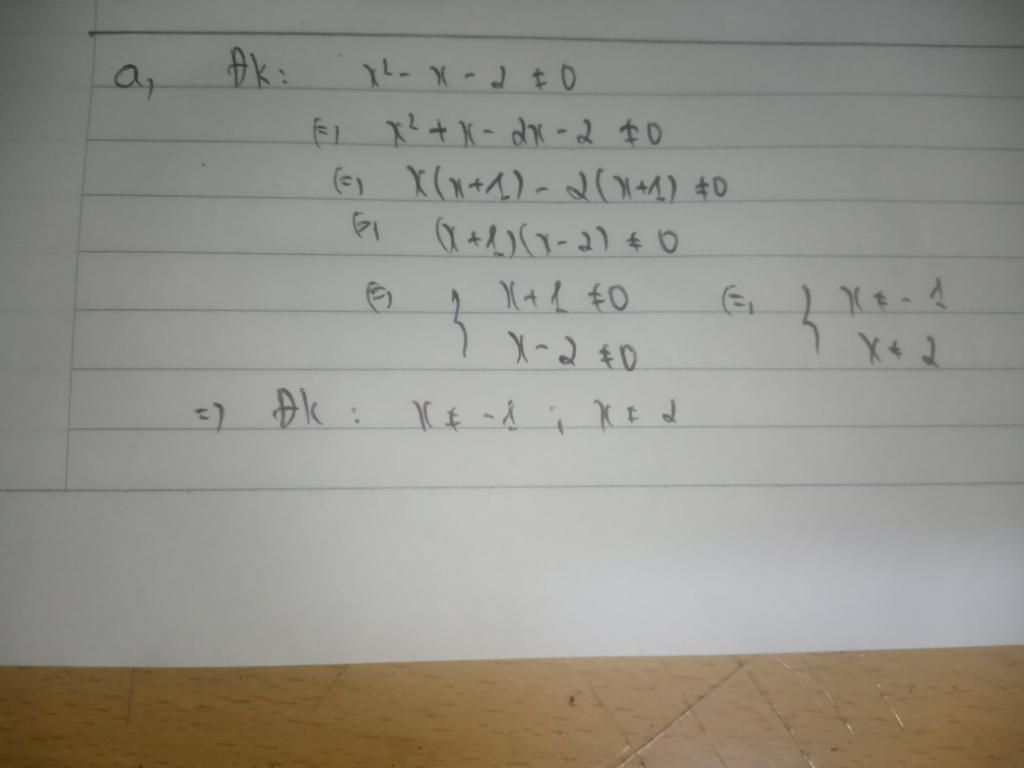 a, Đk: x² - x - 2 ≠ 0
(=) x² + x - 2x - 2 ≠ 0
(=) x(x+1) - 2(x+1) ≠ 0
(=) (x+1)(x-2) ≠ 0
(=) { x+1 ≠ 0 (=) { x ≠ -1
x - 2 ≠ 0 x ≠ 2
=) Đk : x ≠ -1 ; x ≠ 2